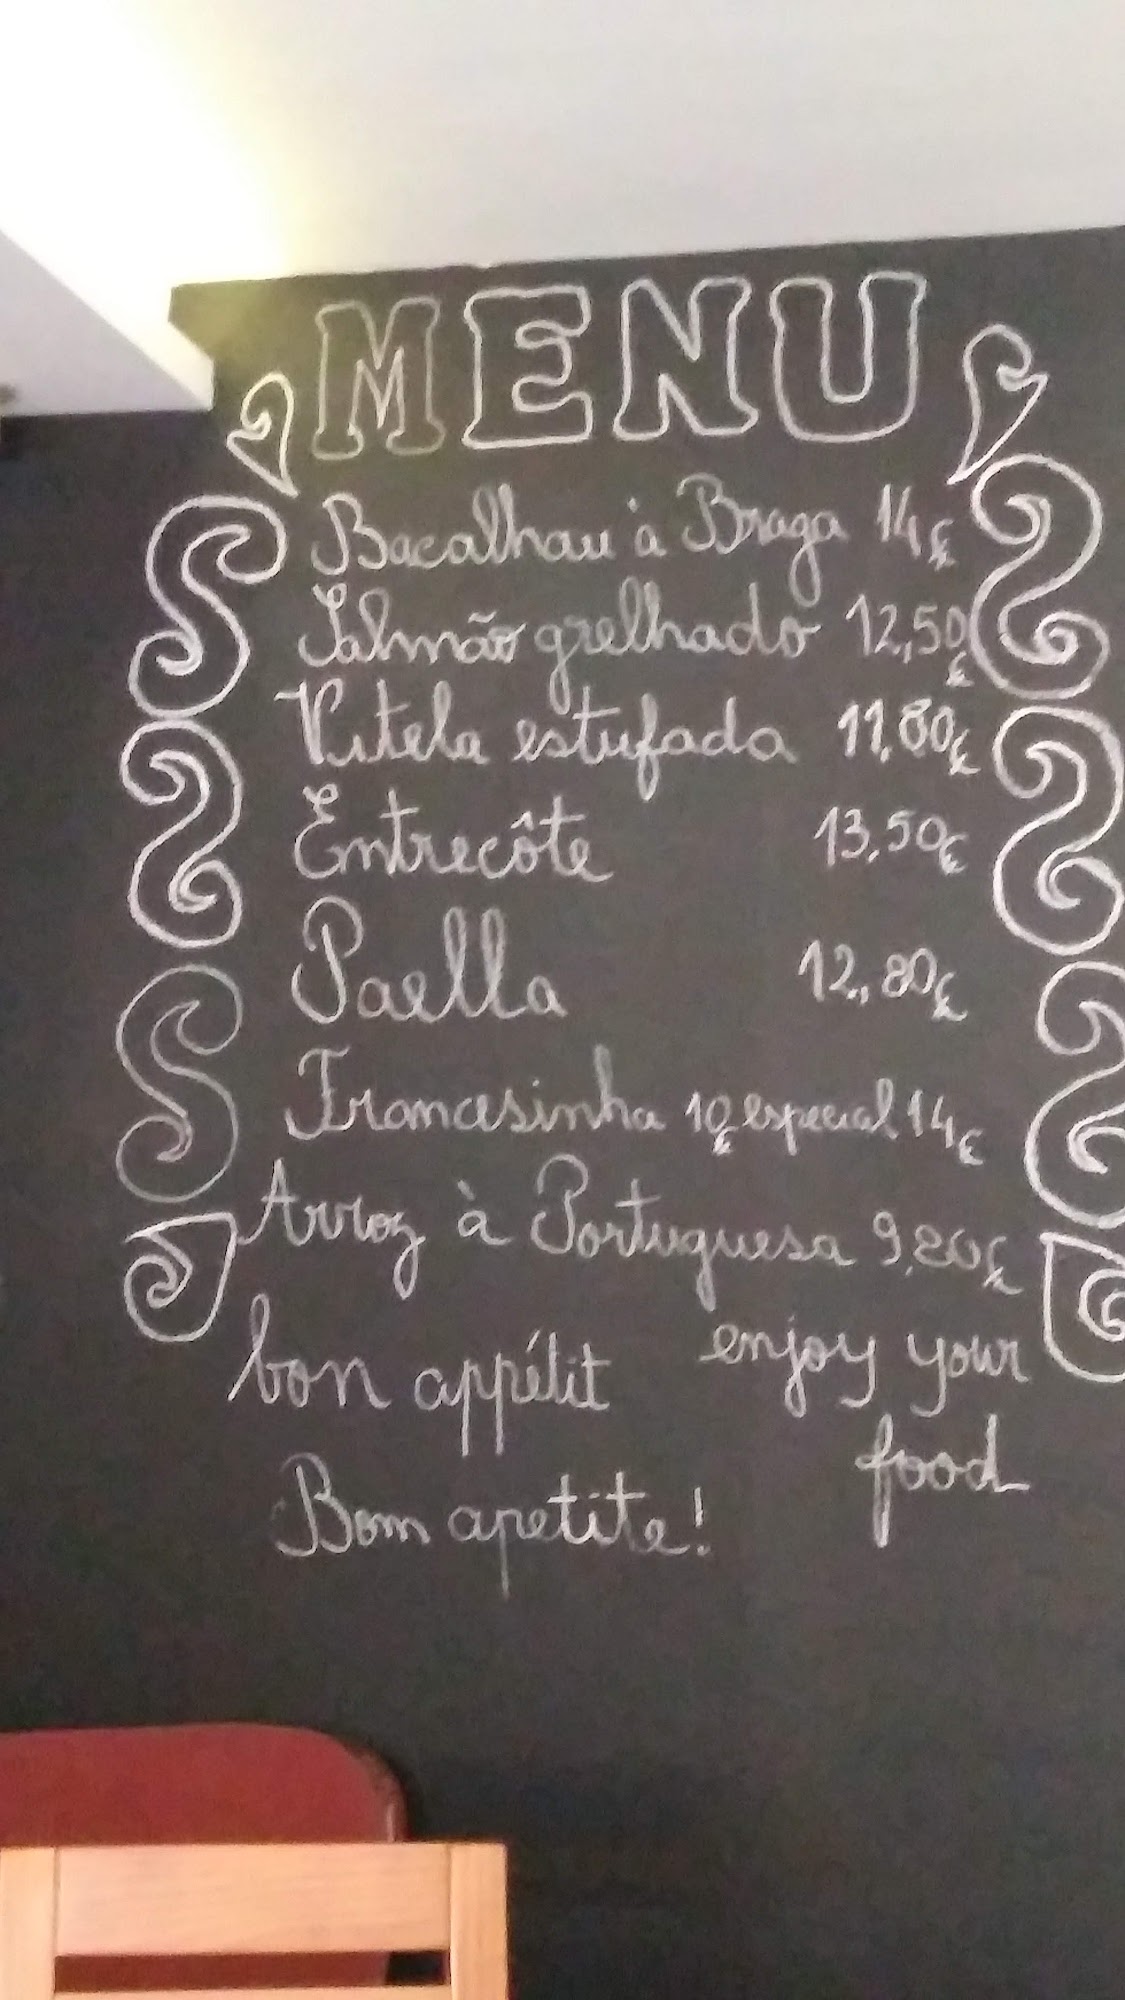 MENU
Bacalhau à Braga 14€
Salmão grelhado 12,50€
Vitela estufada 11,80€
Entrecôte 13,50€
Paella 12,80€
Francesinha 10€ especial 14€
Arroz à Portuguesa 9,80€
bon appétit enjoy your
food
Bom apetite!